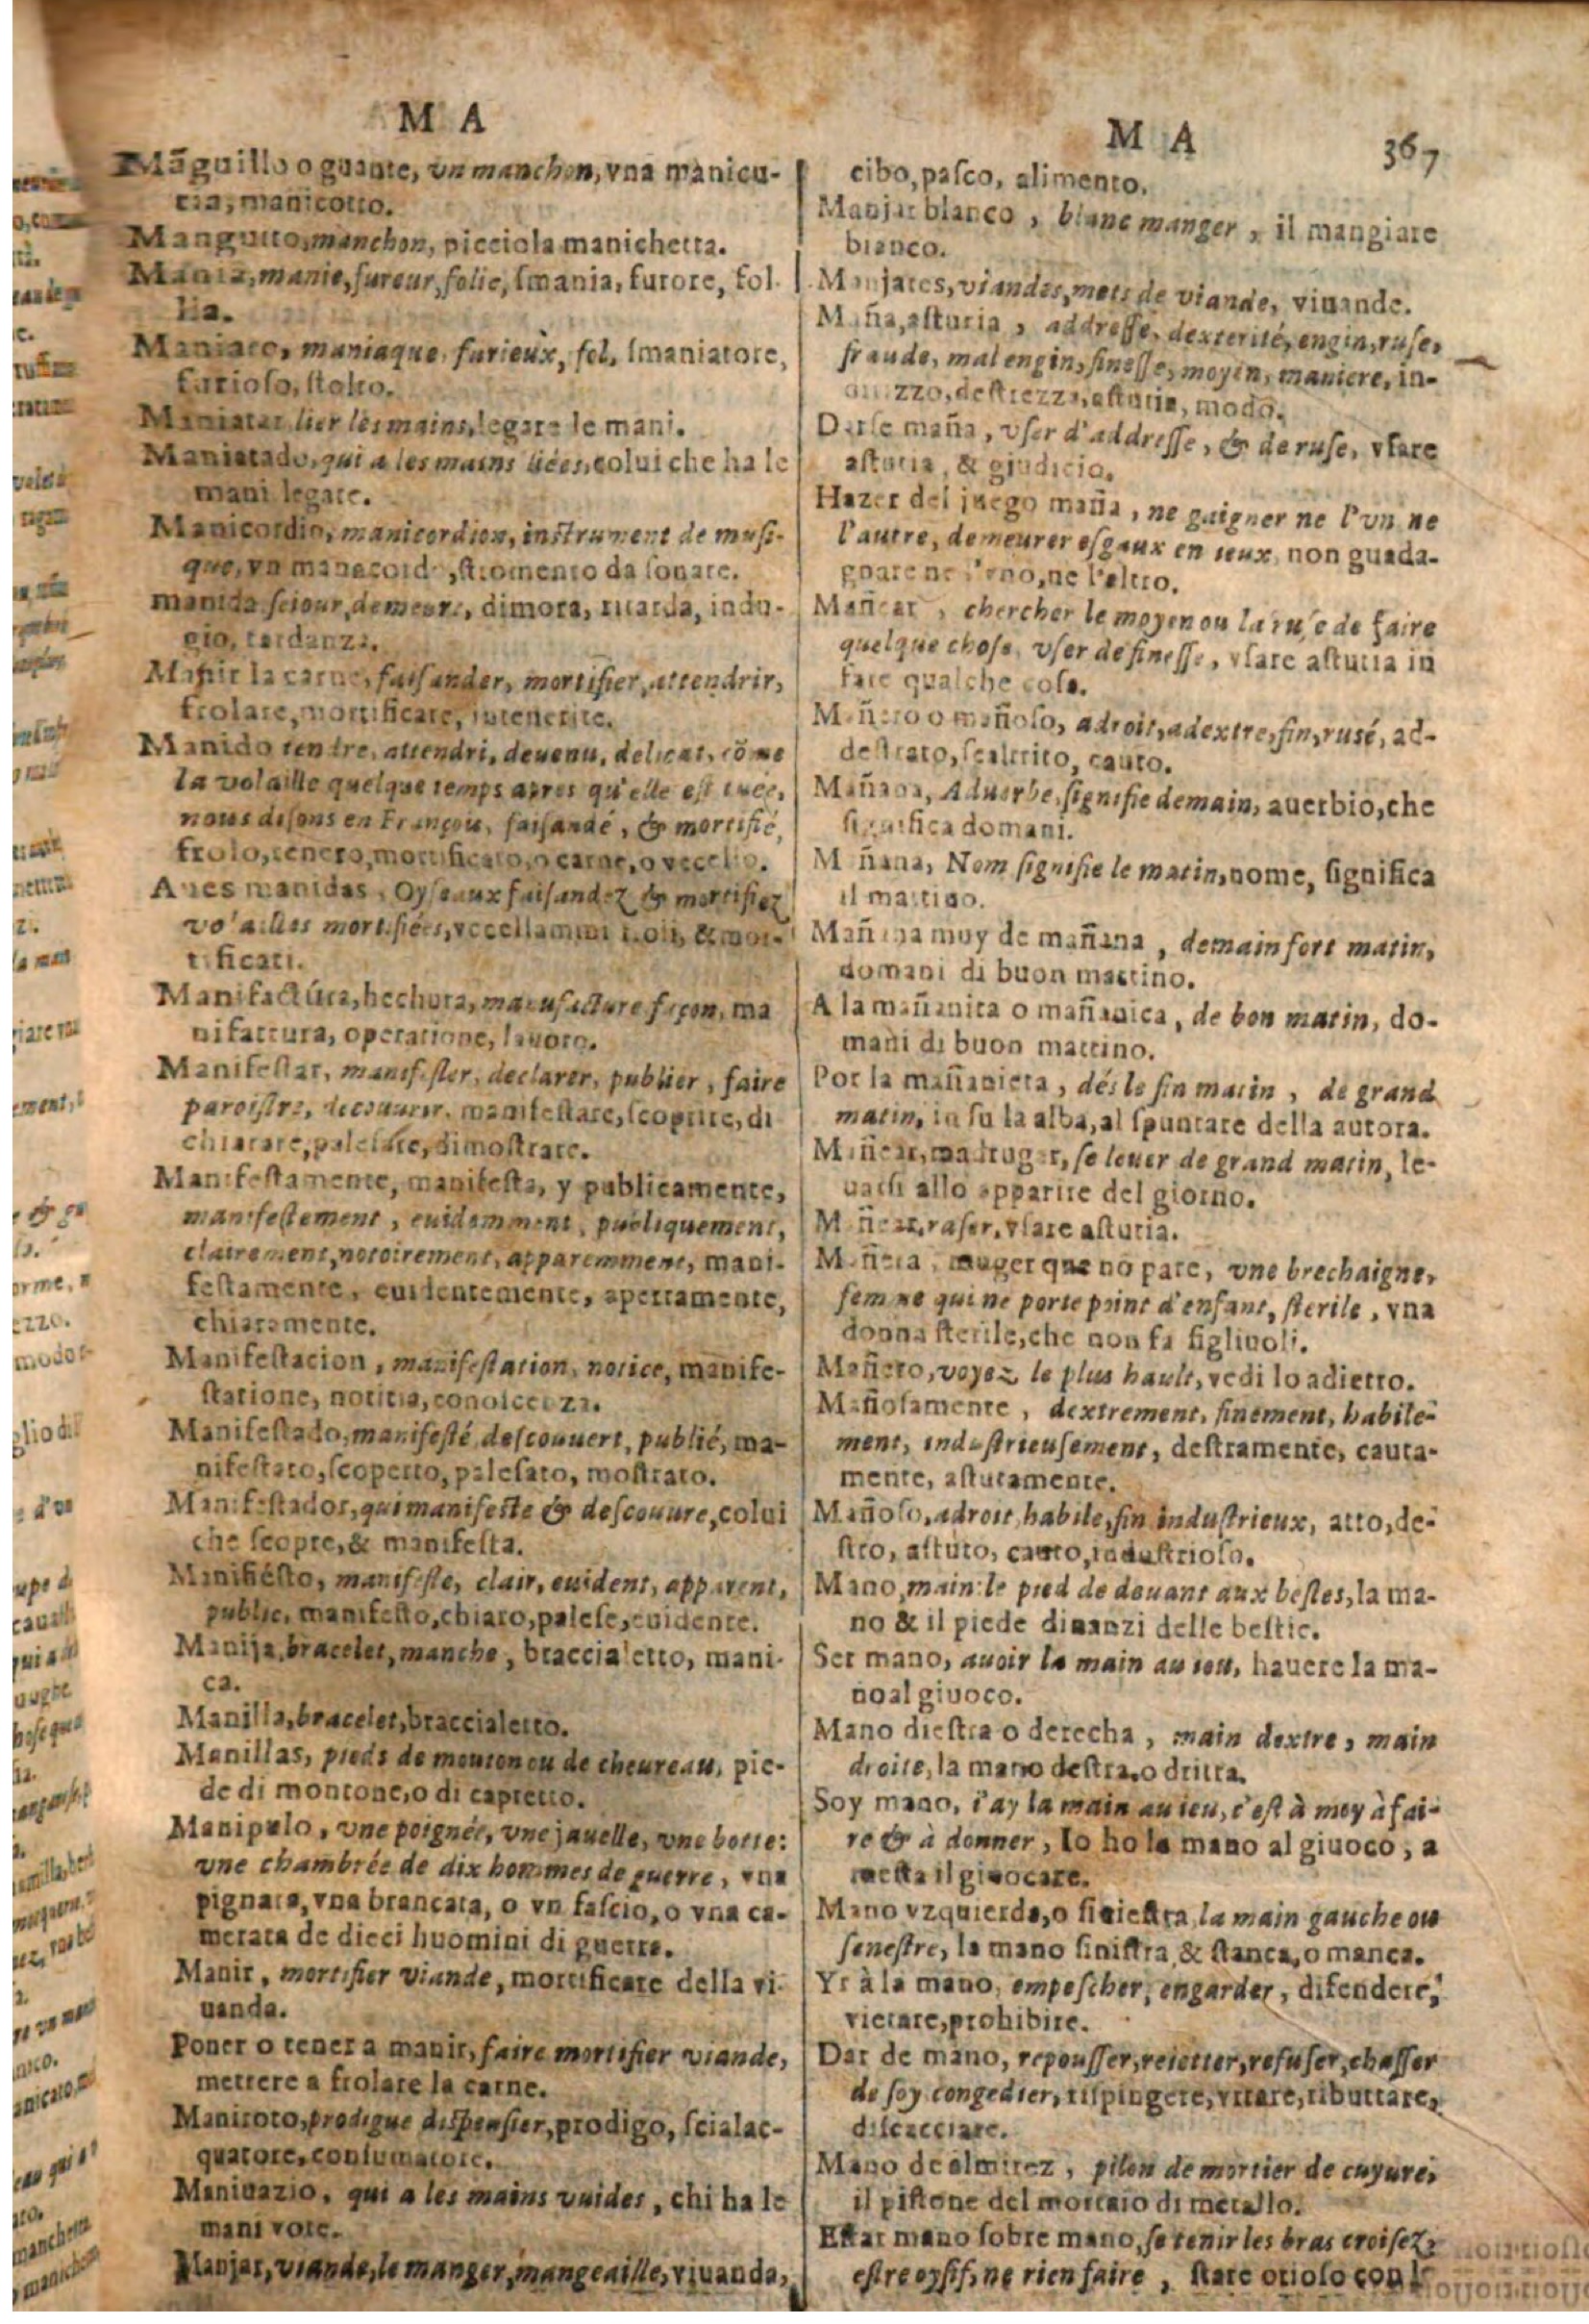 M A
Mãguillo o guante, vn manchon, vna manicu-
cia, manicotto.
Manguito, manchon, picciola manichetta.
Mania, manie, fureur, folie, ſmania, furore, fol-
lia.
Maniaco, maniaque, furieux, fol, ſmaniatore,
furioſo, ſtolto.
Maniatar lier les mains, legare le mani.
Maniatado, qui a les mains liées, colui che ha le
mani legate.
Manicordio, manicordion, inſtrument de muſi-
que, vn manacordo, ſtromento da ſonare.
manida ſeiour, demeure, dimora, ritarda, indu-
gio, tardanza.
Manir la carne, faiſander, mortifier, attendrir,
frolare, mortificare, intenerire.
Manido tendre, attendri, deuenu, delicat, cõme
la volaille quelque temps apres qu'elle eſt tuée,
nous diſons en François, faiſandé, & mortifié,
frolo, tenero, mortificato, o carne, o vccello.
Aues manidas, Oyſeaux faiſandez & mortifiez
volailles mortifiées, vccellamini froli, & mor-
tificati.
Manifactúra, hechura, manufacture façon, ma
nifattura, operatione, lauoro.
Manifeſtar, manifeſter, declarer, publier, faire
paroiſtre, decouurir, manifeſtare, ſcoprire, di
chiarare, paleſare, dimoſtrare.
Manifeſtamente, manifeſta, y publicamente,
manifeſtement, euidemment, publiquement,
clairement, notoirement, apparemment, mani-
feſtamente, euidentemente, apertamente,
chiaramente.
Manifeſtacion, manifeſtation, notice, manife-
ſtatione, notitia, conoſcenza.
Manifeſtado, manifeſté, deſcouuert, publié, ma-
nifeſtato, ſcoperto, paleſato, moſtrato.
Manifeſtador, qui manifeſte & deſcouure, colui
che ſcopre, & manifeſta.
Manifiéſto, manifeſte, clair, euident, apparent,
public, manifeſto, chiaro, paleſe, euidente.
Manija, bracelet, manche, braccialetto, mani-
ca.
Manilla, bracelet, braccialetto.
Manillas, pieds de mouton ou de cheureau, pie-
de di montone, o di capretto.
Manipulo, vne poignée, vne jauelle, vne botte:
vne chambrée de dix hommes de guerre, vna
pignata, vna brancata, o vn faſcio, o vna ca-
merata de dieci huomini di guerra.
Manir, mortifier viande, mortificare della vi-
uanda.
Poner o tener a manir, faire mortifier viande,
mettere a frolare la carne.
Maniroto, prodigue diſpenſier, prodigo, ſcialac-
quatore, conſumatore.
Maniuazio, qui a les mains vuides, chi ha le
mani vote.
Manjar, viande, le manger, mangeaille, viuanda,
M A
367
cibo, paſco, alimento.
Manjar blanco, blanc manger, il mangiare
bianco.
Manjares, viandes, mets de viande, viuande.
Maña, aſtucia, addreſſe, dexterité, engin, ruſe,
fraude, mal engin, fineſſe, moyen, maniere, in-
drizzo, deſtrezza, aſtutia, modo.
Darſe maña, vſer d'addreſſe, & de ruſe, vſare
aſtutia, & giudicio.
Hazer del juego maña, ne gaigner ne l'vn ne
l'autre, demeurer eſgaux en ieux, non guada-
gnare ne l'vno, ne l'altro.
Mañear, chercher le moyen ou la ruſe de faire
quelque choſe, vſer de fineſſe, vſare aſtutia in
fare qualche coſa.
Mañero o mañoſo, adroit, adextre, fin, ruſé, ad-
deſtrato, ſcaltrito, cauto.
Mañana, Aduerbe, ſignifie demain, auerbio, che
ſignifica domani.
Mañana, Nom ſignifie le matin, nome, ſignifica
il mattino.
Mañana muy de mañana, demain fort matin,
domani di buon mattino.
A la mañanita o mañanica, de bon matin, do-
mani di buon mattino.
Por la mañanieta, dés le fin matin, de grand
matin, in ſu la alba, al ſpuntare della aurora.
Mañear, madrugar, ſe leuer de grand matin, le-
uarſi allo apparire del giorno.
Mañear, ruſer, vſare aſtutia.
Mañera, muger que no pare, vne brechaigne,
femme qui ne porte point d'enfant, ſterile, vna
donna ſterile, che non fa figliuoli.
Mañero, voyez le plus hault, vedi lo adietro.
Mañoſamente, dextrement, finement, habile-
ment, induſtrieuſement, deſtramente, cauta-
mente, aſtutamente.
Mañoſo, adroit, habile, fin induſtrieux, atto, de-
ſtro, aſtuto, cauto, induſtrioſo.
Mano, main: le pied de deuant aux beſtes, la ma-
no & il piede dinanzi delle beſtie.
Ser mano, auoir la main au ieu, hauere la ma-
no al giuoco.
Mano dieſtra o derecha, main dextre, main
droite, la mano deſtra, o dritta.
Soy mano, i'ay la main au ieu, c'eſt à moy à fai-
re & à donner, Io ho la mano al giuoco, a
me ſta il giuocare.
Mano yzquierda, o ſinieſtra, la main gauche ou
ſeneſtre, la mano ſiniſtra, & ſtanca, o manca.
Yr à la mano, empeſcher, engarder, difendere,
vietare, prohibire.
Dar de mano, repouſſer, reietter, refuſer, chaſſer
de ſoy congedier, riſpingere, vitare, ributtare,
diſcacciare.
Mano de almirez, pilon de mortier de cuyure,
il piſtone del mortaio di metallo.
Eſtar mano ſobre mano, ſe tenir les bras croiſez,
eſtre oyſif, ne rien faire, ſtare otioſo con le